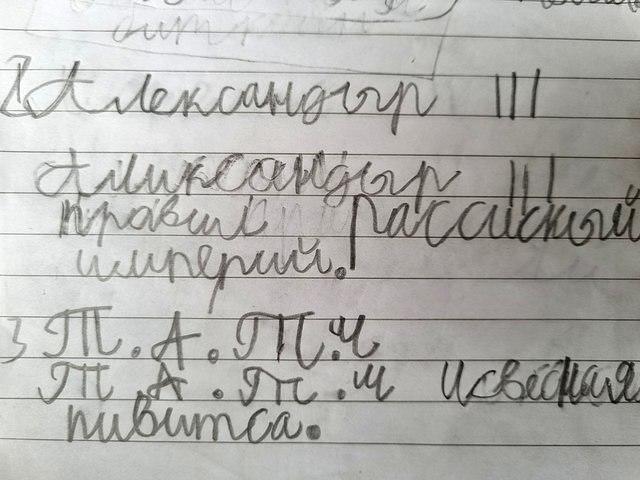 2 Александыр III
Аликсандыр III
правил Рассийской
империй.
3 Т.А.Т.У
Т.А.Т.У исвесная
пивитса.